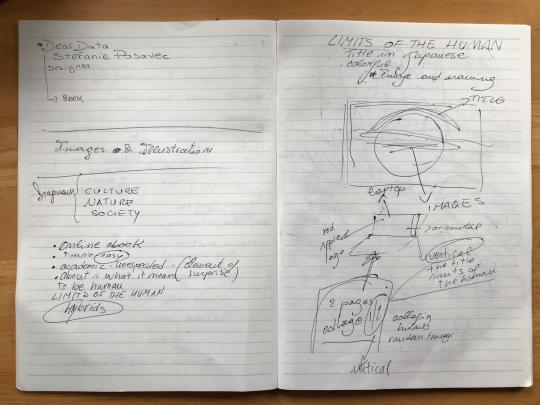 Dear Data
Stefanie Posavec
Designer
→ BOOK
Images & Illustration
Diagrams
CULTURE
NATURE
SOCIETY
• online ebook
easy
• academic - unexpected - (element of surprise)
• about = what it means
to be human
LIMITS OF THE HUMAN
Hybrids
LIMITS OF THE HUMAN
Title in Japanese
colorful
Image and meaning
TITLE
laptop
IMAGES
red
apple
logo
horizontal
vertical
the title
limits of
the human
2 pages
collage
collaging
humans
random things
vertical